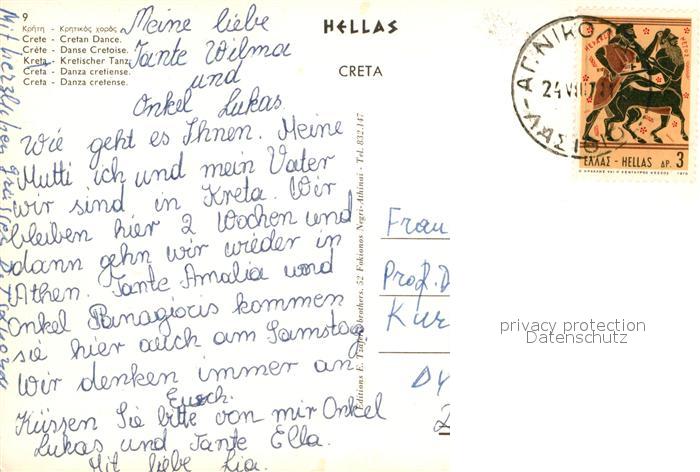 9
Κρήτη - Κρητικός χορός
Crete - Cretan Dance.
Crète - Danse Cretoise.
Kreta - Kretischer Tanz
Creta - Danza cretiense.
Creta - Danza cretense.
HELLAS
CRETA
Meine liebe
Tante Wilma
und
Onkel Lukas.
Wie geht es Ihnen. Meine
Mutti ich und mein Vater
wir sind in Kreta. Wir
bleiben hier 2 Wochen und
dann gehn wir wieder in
Athen. Tante Amalia und
Onkel Panagiotis kommen
sie hier auch am Samstag
Wir denken immer an
Euch.
Küssen Sie bitte von mir Onkel
Lukas und Tante Ella.
Mit liebe Lia.
Mit herzlichen Grüssen
brothers, 52 Fokionos Negri-Athinai - Tel. 832.147
Frau
Prof. D
Kur
ΑΓ. ΝΙΚΟ
24 VII
ΕΛΛΑΣ - HELLAS ΔΡ. 3
privacy protection
Datenschutz